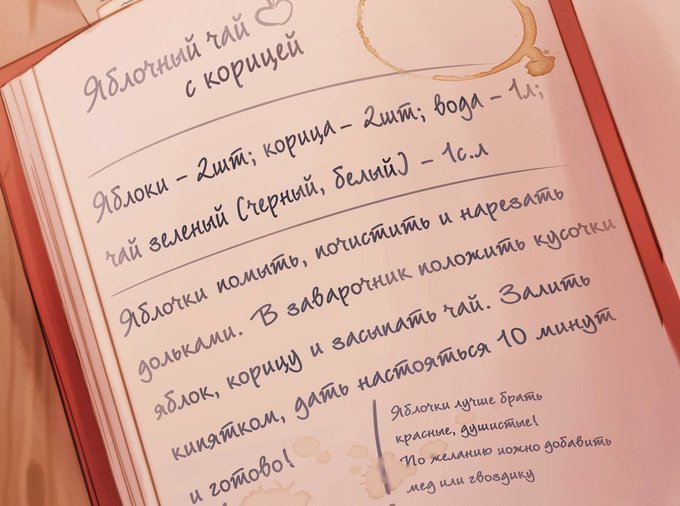 Яблочный чай
с корицей
Яблоки – 2шт; корица – 2шт; вода – 1л;
чай зеленый (черный, белый) – 1с.л
Яблочки помыть, почистить и нарезать
дольками. В заварочник положить кусочки
яблок, корицу и засыпать чай. Залить
кипятком, дать настояться 10 минут
и готово!
Яблочки лучше брать
красные, душистые!
По желанию можно добавить
мед или гвоздику